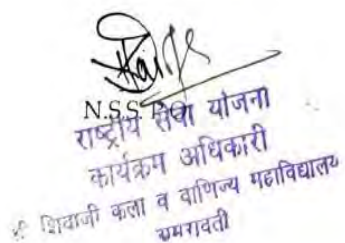 N.S.S. P.O.
राष्ट्रीय सेवा योजना
कार्यक्रम अधिकारी
श्री शिवाजी कला व वाणिज्य महाविद्यालय
अमरावती